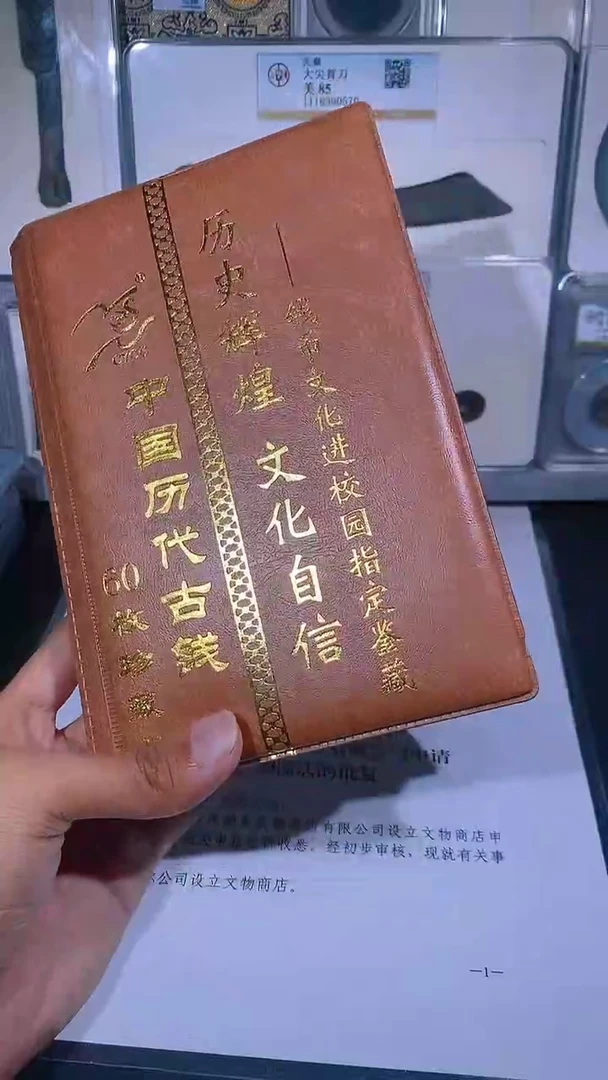 大尖首刀
美 85
历史辉煌 文化自信
——钱币文化进校园指定鉴藏
中国历代古钱
60枚珍藏
申请
有限公司设立文物商店申
收悉。经初步审核，现就有关事
公司设立文物商店。
—1—